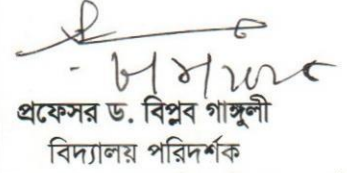 প্রফেসর ড. বিপ্লব গাঙ্গুলী
বিদ্যালয় পরিদর্শক